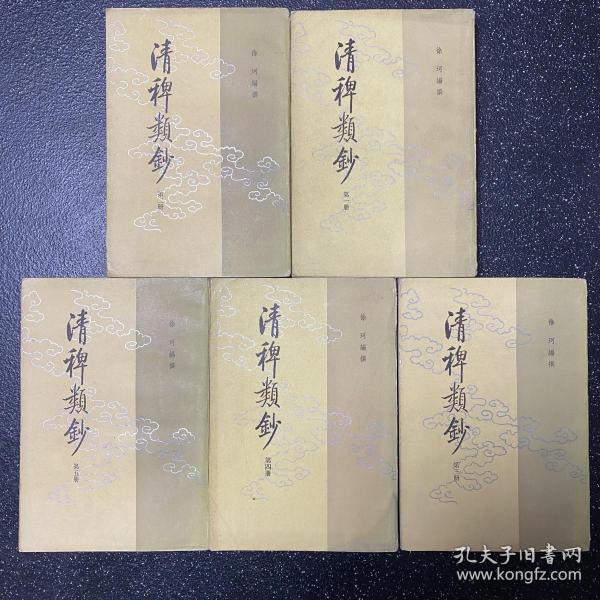 清稗類鈔
徐珂編撰
第二册
清稗類鈔
徐珂編撰
第一册
清稗類鈔
徐珂編撰
第五册
清稗類鈔
徐珂編撰
第四册
清稗類鈔
徐珂編撰
第三册
孔夫子旧书网
www.kongfz.com